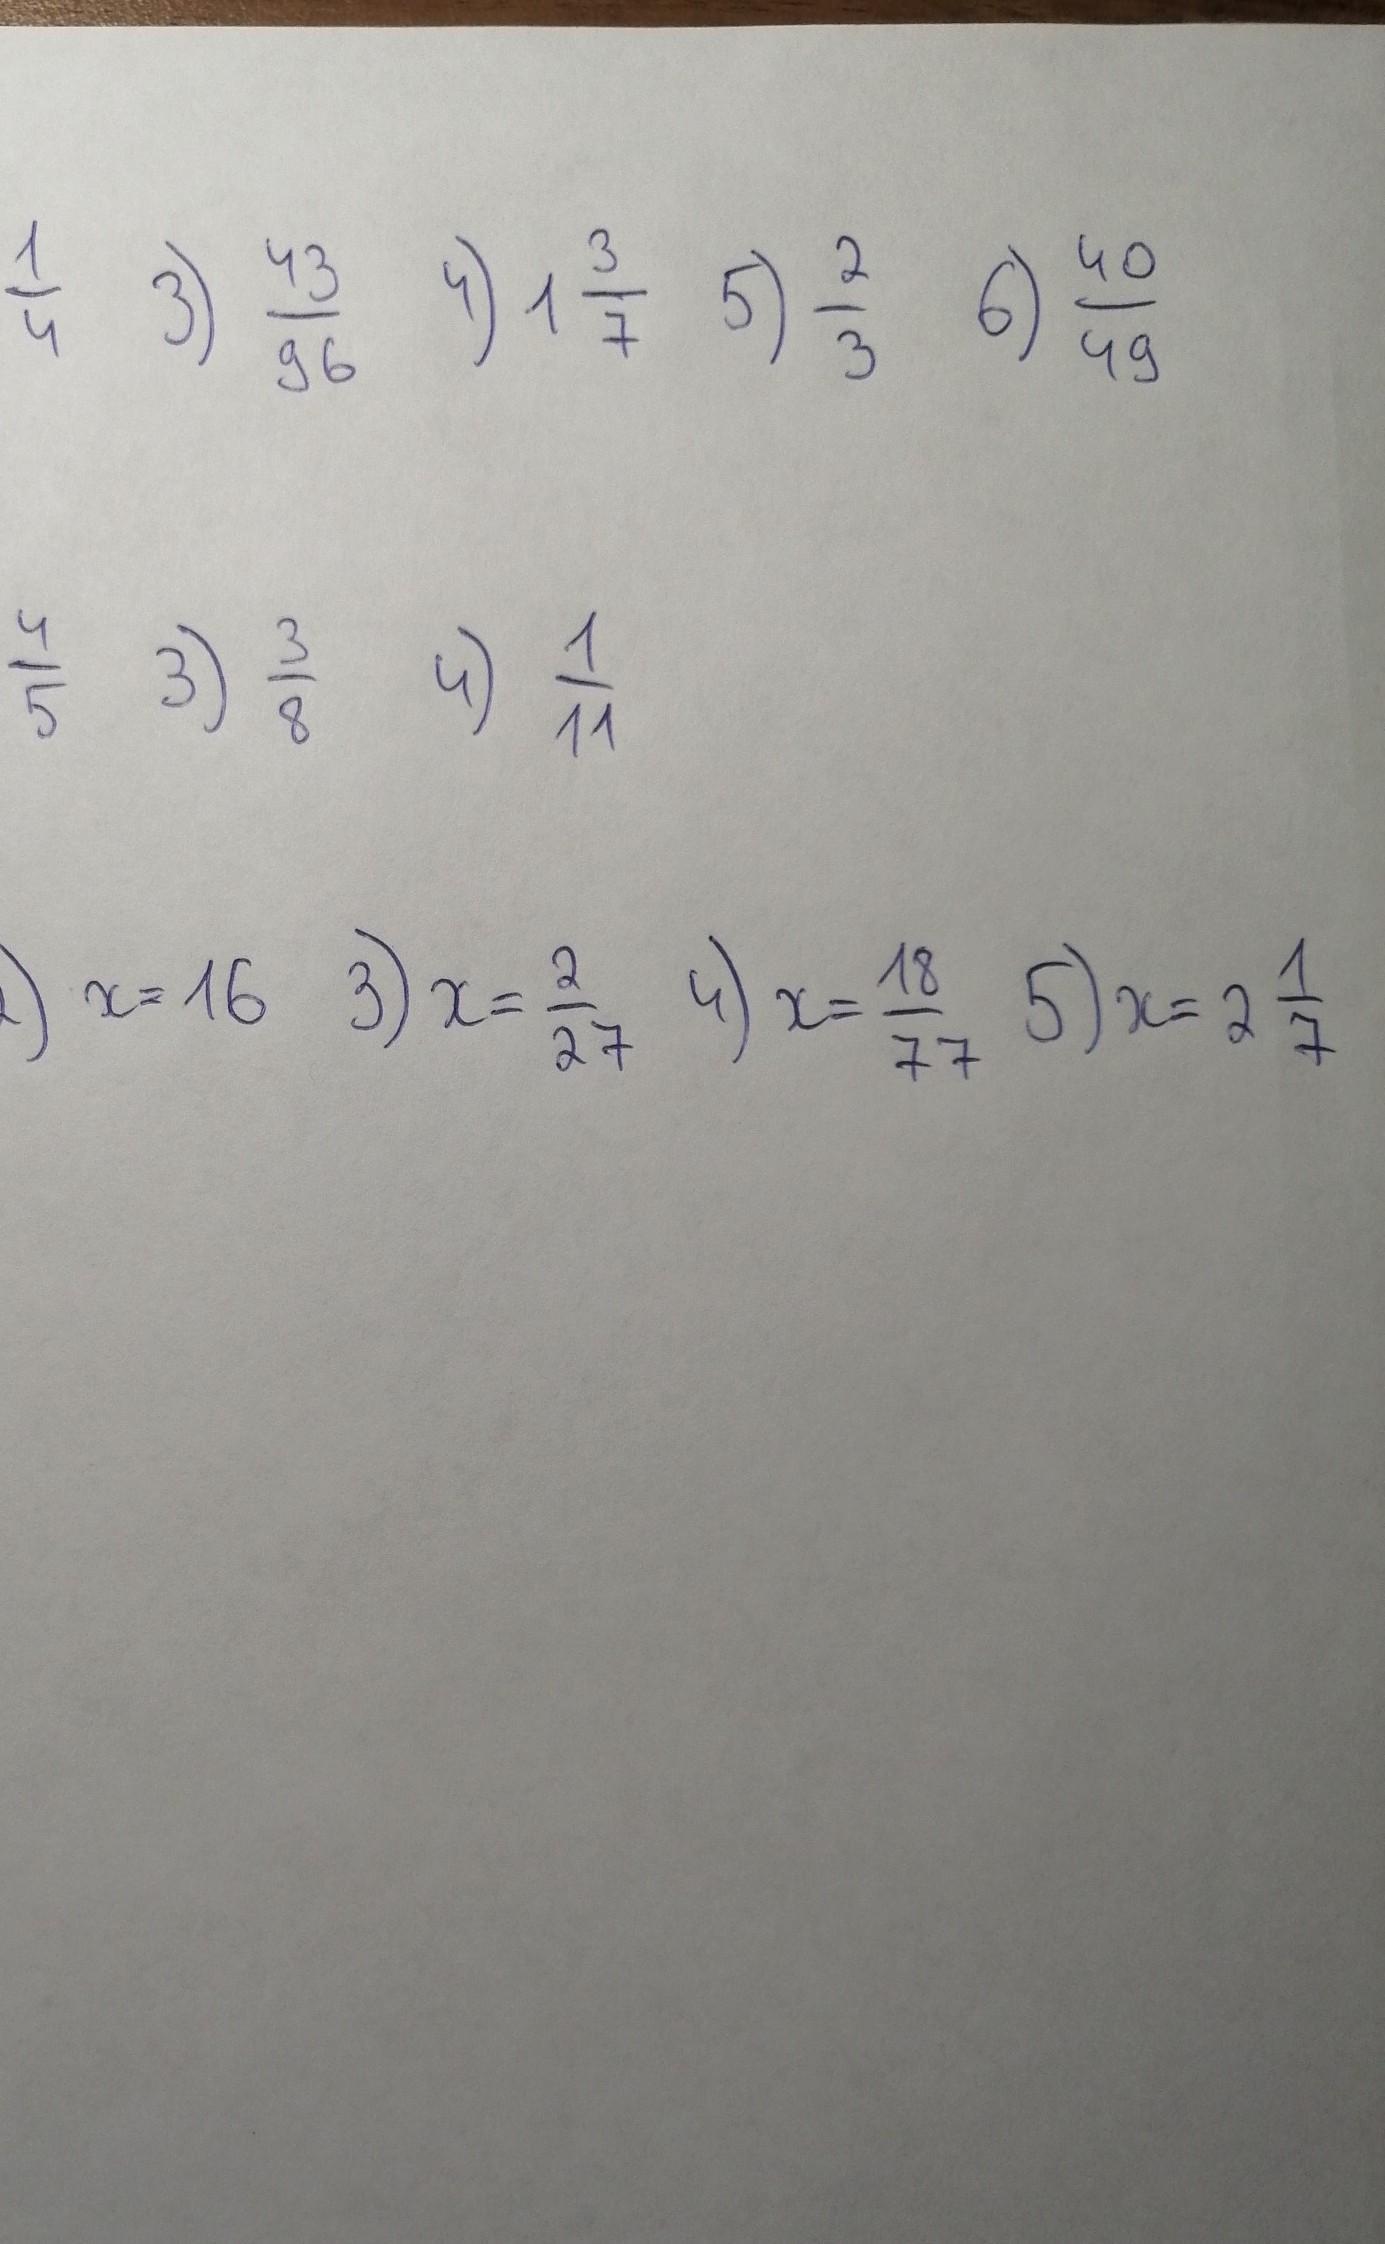 1/4 3) 43/96 4) 1 3/7 5) 2/3 6) 40/49
4/5 3) 3/8 4) 1/11
) x=16 3) x= 2/27 4) x= 18/77 5) x= 2 1/7